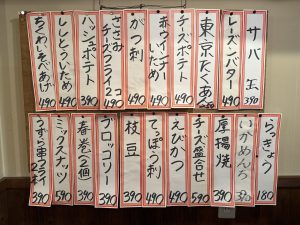 サバ 玉 390
レーズンバター 490
東京たくあん
チーズポテト 490
赤ウィンナーいため 490
がつ刺 490
ささみチーズフライ2コ 490
ハッシュポテト 390
ししとういため 490
ちくわいそべあげ 490
らっきょう 180
いかめんち
厚揚焼 390
チーズ盛合せ 590
えびかつ 490
てっぽう刺 490
枝豆 390
ブロッコリー 390
春巻(2個) 390
ミックスナッツ 590
うずら串フライ2本 390